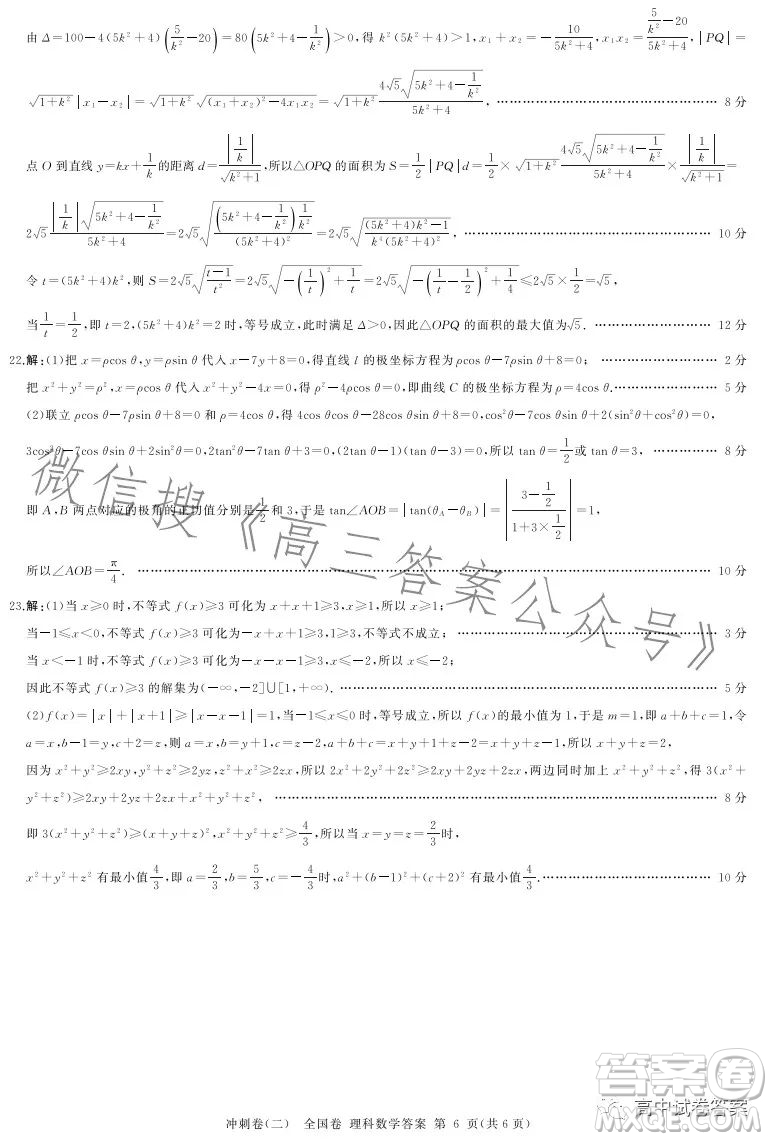 由Δ=100-4(5k²+4)(5/k²-20)=80(5k²+4-1/k²)>0,得 k²(5k²+4)>1,x₁+x₂=-10/(5k²+4),x₁x₂=(5/k²-20)/(5k²+4),|PQ|=
√(1+k²)|x₁-x₂|=√(1+k²)√((x₁+x₂)²-4x₁x₂)=√(1+k²)·4√5√(5k²+4-1/k²)/(5k²+4), …… 8分
点O到直线y=kx+1/k的距离d=|1/k|/√(k²+1),所以△OPQ的面积为S=1/2|PQ|d=1/2×√(1+k²)·4√5√(5k²+4-1/k²)/(5k²+4)×|1/k|/√(k²+1)=
2√5·|1/k|√(5k²+4-1/k²)/(5k²+4)=2√5√((5k²+4-1/k²)1/k²/(5k²+4)²)=2√5√(((5k²+4)k²-1)/(k⁴(5k²+4)²)). …… 10分
令t=(5k²+4)k²,则S=2√5√((t-1)/t²)=2√5√(-(1/t)²+1/t)=2√5√(-(1/t-1/2)²+1/4)≤2√5×1/2=√5,
当1/t=1/2,即t=2,(5k²+4)k²=2时,等号成立,此时满足Δ>0,因此△OPQ的面积的最大值为√5. …… 12分
22.解:(1)把x=ρcos θ,y=ρsin θ代入x-7y+8=0,得直线l的极坐标方程为ρcos θ-7ρsin θ+8=0; …… 2分
把x²+y²=ρ²,x=ρcos θ代入x²+y²-4x=0,得ρ²-4ρcos θ=0,即曲线C的极坐标方程为ρ=4cos θ. …… 5分
(2)联立ρcos θ-7ρsin θ+8=0和ρ=4cos θ,得4cos θcos θ-28cos θsin θ+8=0,cos²θ-7cos θsin θ+2(sin²θ+cos²θ)=0,
3cos²θ-7cos θsin θ+2sin²θ=0,2tan²θ-7tan θ+3=0,(2tan θ-1)(tan θ-3)=0,所以tan θ=1/2或tan θ=3, …… 8分
即A,B两点对应的极角的正切值分别是1/2和3,于是tan∠AOB=|tan(θA-θB)|=|(3-1/2)/(1+3×1/2)|=1,
所以∠AOB=π/4. …… 10分
23.解:(1)当x≥0时,不等式f(x)≥3可化为x+x+1≥3,x≥1,所以x≥1;
当-1≤x<0,不等式f(x)≥3可化为-x+x+1≥3,1≥3,不等式不成立; …… 3分
当x<-1时,不等式f(x)≥3可化为-x-x-1≥3,x≤-2,所以x≤-2;
因此不等式f(x)≥3的解集为(-∞,-2]∪[1,+∞). …… 5分
(2)f(x)=|x|+|x+1|≥|x-x-1|=1,当-1≤x≤0时,等号成立,所以f(x)的最小值为1,于是m=1,即a+b+c=1,令
a=x,b-1=y,c+2=z,则a=x,b=y+1,c=z-2,a+b+c=x+y+1+z-2=x+y+z-1,所以x+y+z=2,
因为x²+y²≥2xy,y²+z²≥2yz,z²+x²≥2zx,所以2x²+2y²+2z²≥2xy+2yz+2zx,两边同时加上x²+y²+z²,得3(x²+
y²+z²)≥2xy+2yz+2zx+x²+y²+z², …… 8分
即3(x²+y²+z²)≥(x+y+z)²,x²+y²+z²≥4/3,所以当x=y=z=2/3时,
x²+y²+z²有最小值4/3,即a=2/3,b=5/3,c=-4/3时,a²+(b-1)²+(c+2)²有最小值4/3. …… 10分
微信搜《高三答案公众号》
答案圈
高中试卷答案
MXQE.COM
冲刺卷(二) 全国卷 理科数学答案 第 6 页(共6页)